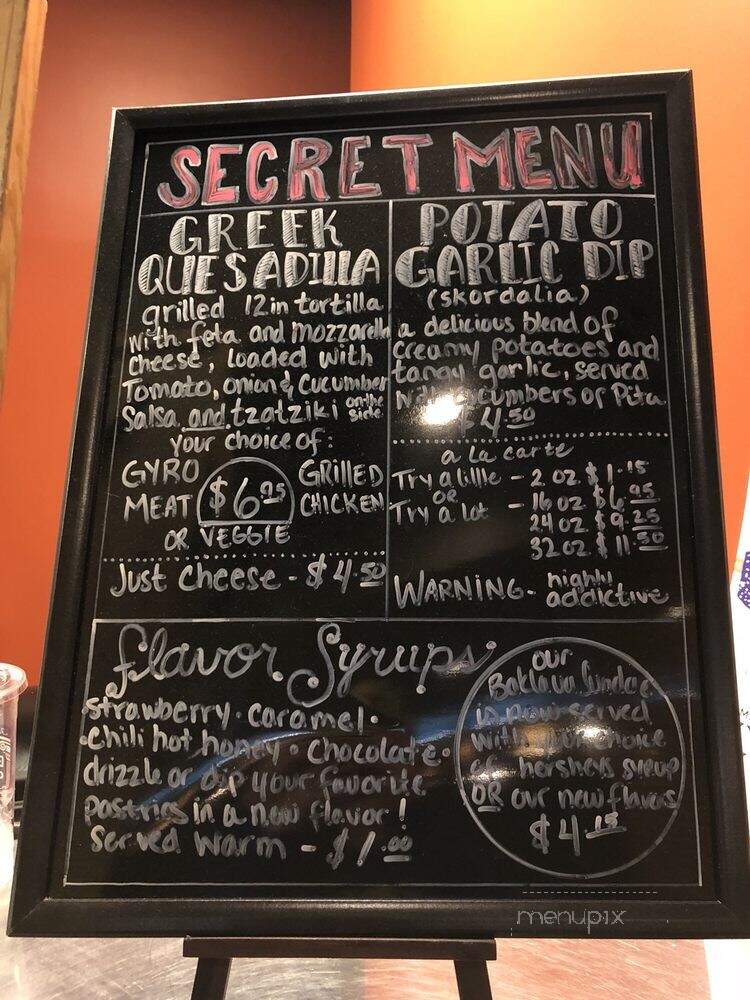 SECRET MENU
GREEK
QUESADILLA
grilled 12in tortilla
with feta and mozzarella
cheese, loaded with
Tomato, onion & cucumber
Salsa and tzatziki on the side
your choice of:
GYRO MEAT $6.95 GRILLED CHICKEN
OR VEGGIE
Just Cheese - $4.50
POTATO
GARLIC DIP
(skordalia)
a delicious blend of
creamy potatoes and
tangy garlic, served
with cucumbers or Pita
$4.50
a la carte
Try a little - 2 oz $1.15
OR
Try a lot - 16 oz $6.95
24 oz $9.25
32 oz $11.50
WARNING - highly
addictive
flavor Syrups
strawberry · caramel ·
· chili hot honey · chocolate ·
drizzle or dip your favorite
pastries in a new flavor!
Served warm - $1.00
our
Baklava Sundae
is now served
with your choice
of hersheys syrup
OR our new flavors
$4.15
menupix